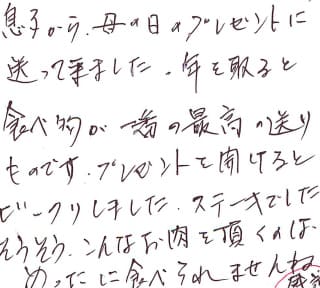 息子から、母の日のプレゼントに
送って来ました。年を取ると
食べ物が一番の最高の送り
ものです。プレゼントを開けると
ビックリしました。ステーキでした
そうそう、こんなお肉を頂くのは、
めったに食べられませんね